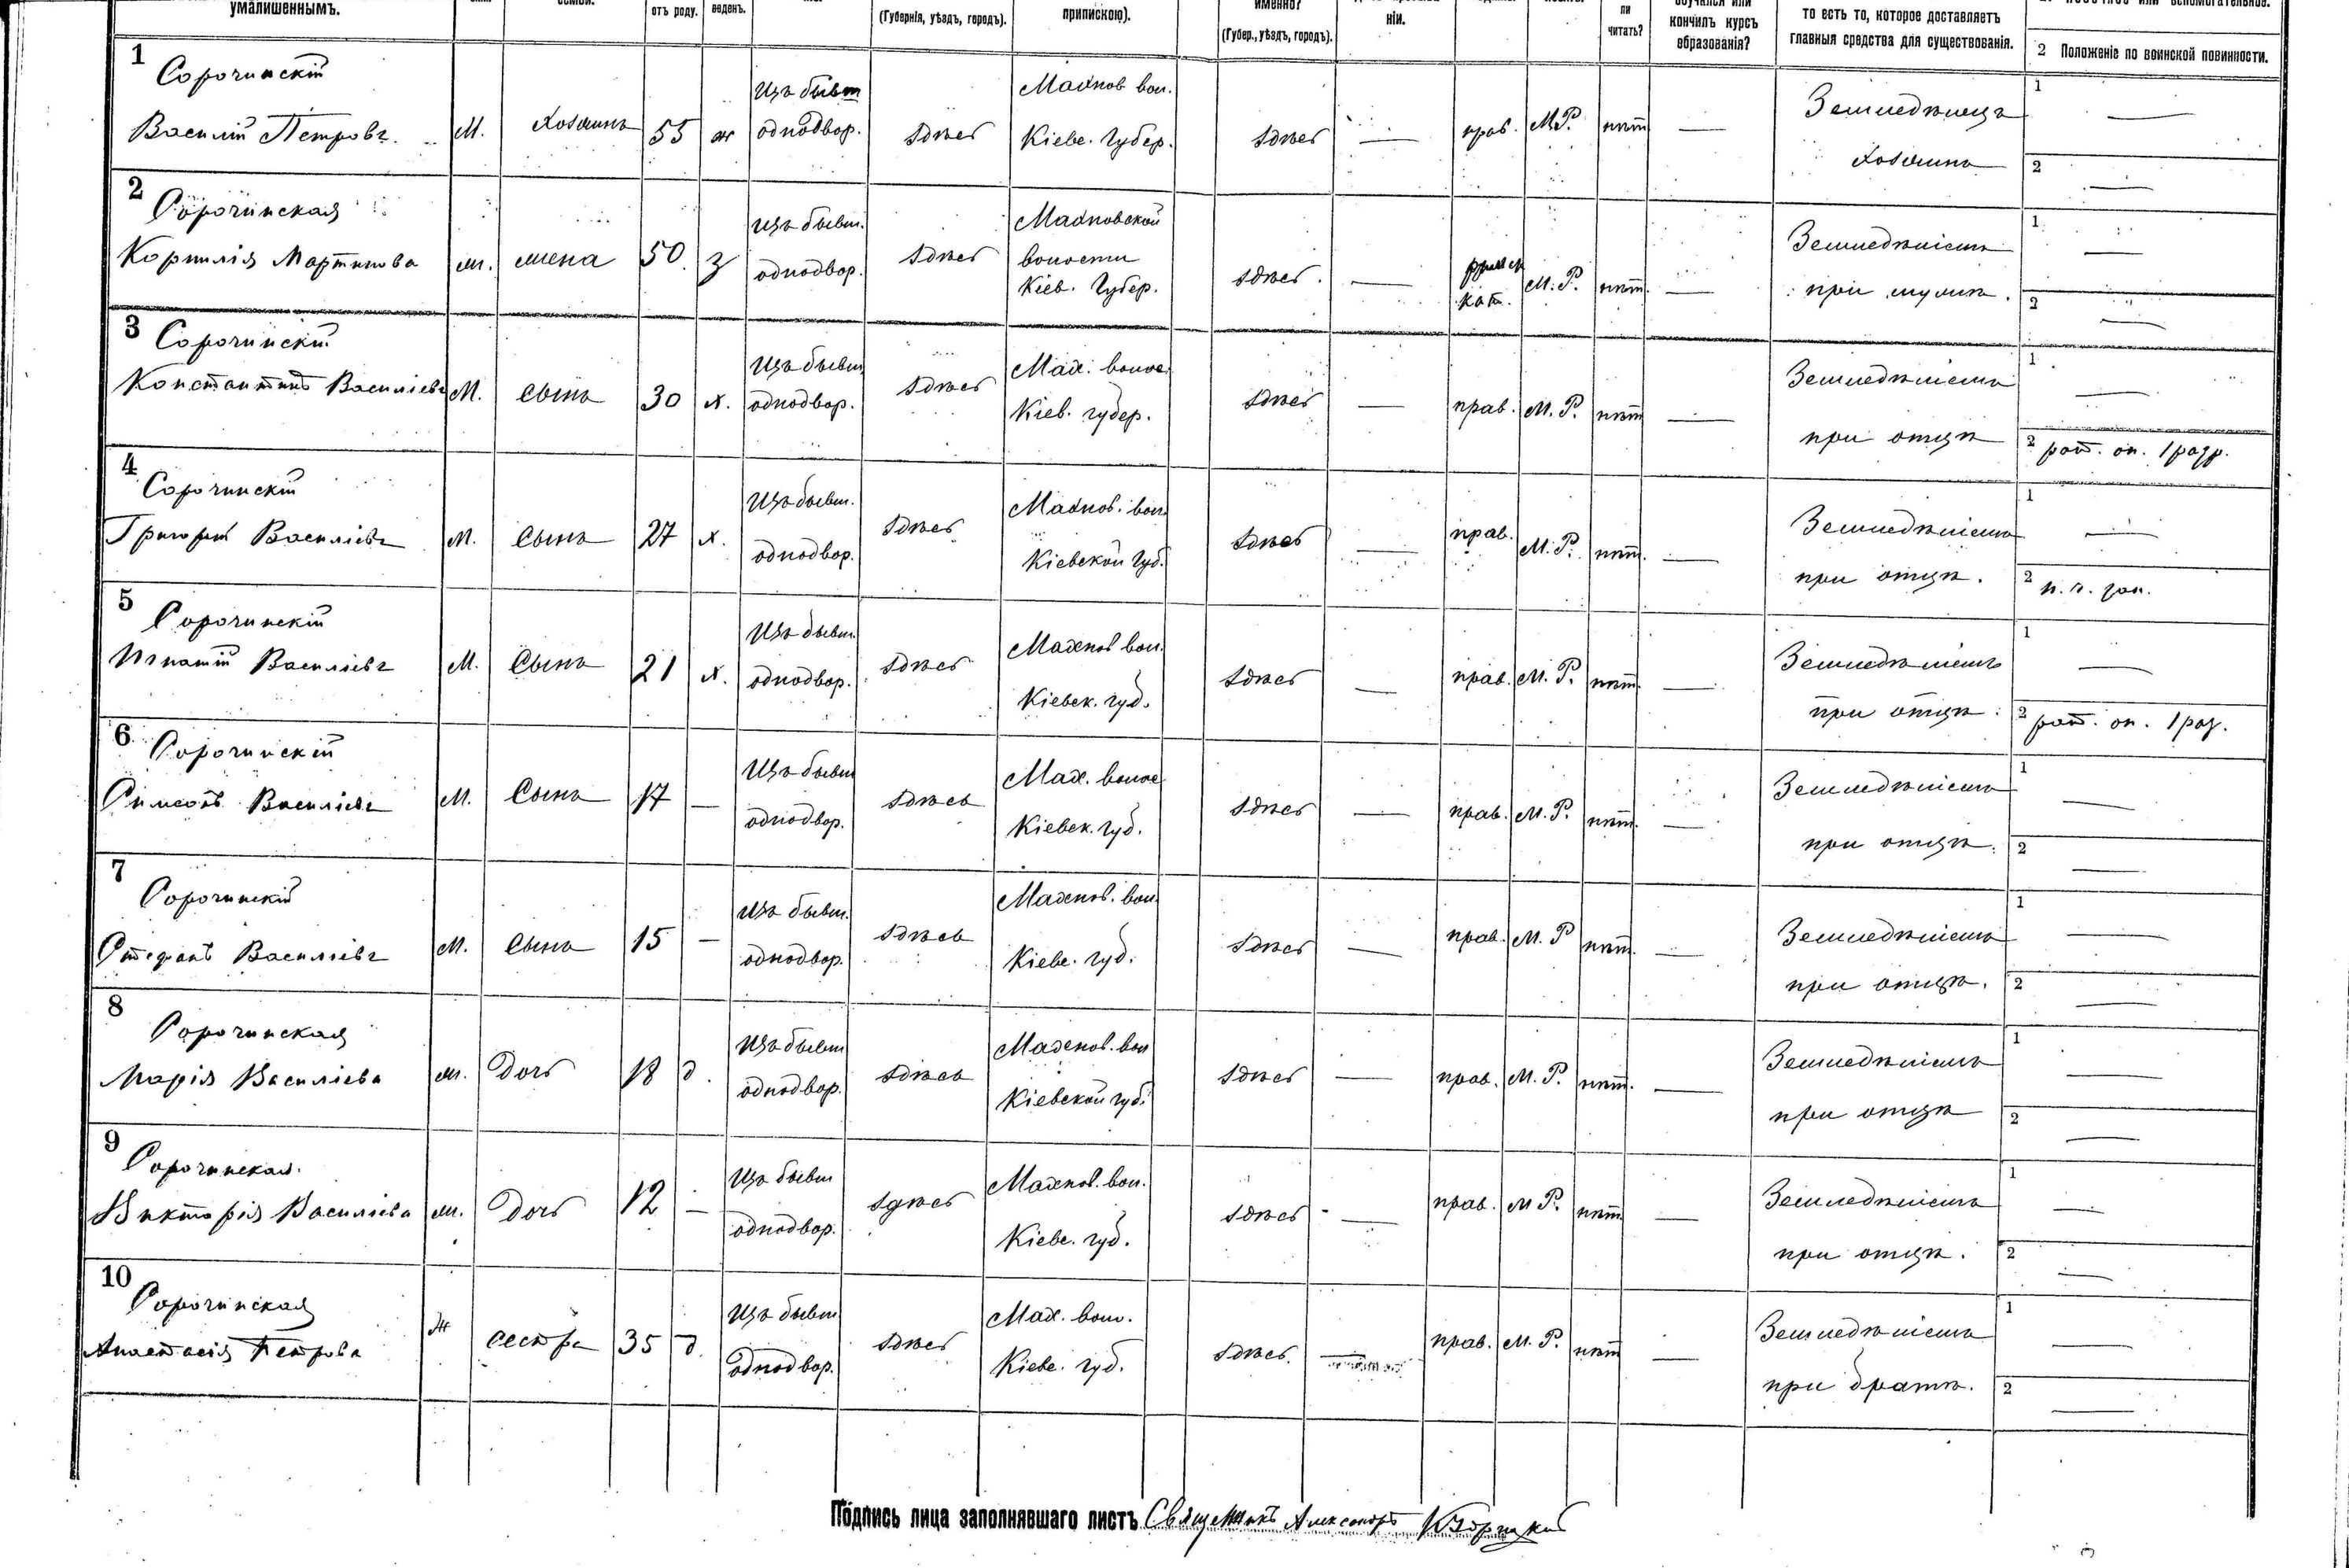 умалишеннымъ.
отъ роду.
веденъ.
(Губернія, уѣздъ, городъ).
припискою).
именно?
(Губер., уѣздъ, городъ).
ніи.
ли
читать?
обучался или
кончилъ курсъ
образованія?
то есть то, которое доставляетъ
главныя средства для существованія.
2 Положеніе по воинской повинности.
1 Сорочинскій
Василій Петровъ. М. Хозяинъ 55 ж Изъ бывш однодвор. здѣсь Махнов вол. Кіевс. Губер. здѣсь — прав. М.Р. нѣт — Земледѣлецъ хозяинъ 1 — 2 —
2 Сорочинская
Корнилія Мартинова ж. жена 50 з Изъ бывш. однодвор. здѣсь Махновской волости Кіев. Губер. здѣсь. — кат. М. Р. нѣт. — Земледѣліемъ при мужѣ. 1 — 2 —
3 Сорочинскій
Константинъ Василіевъ М. сынъ 30 х. Изъ бывш однодвор. здѣсь Мах. волос. Кіев. губер. здѣсь — прав. М. Р. нѣт — Земледѣліемъ при отцѣ 1 — 2 рат. оп. 1 разр.
4 Сорочинскій
Григорій Василіевъ М. Сынъ 27 х. Изъ бывш. однодвор. здѣсь Махнов. вол. Кіевской губ. здѣсь — прав. М. Р. нѣт. — Земледѣліемъ при отцѣ. 1 — 2 н. ч. зап.
5 Сорочинскій
Игнатій Василіевъ М. Сынъ 21 х. Изъ бывш. однодвор. здѣсь Махнов вол. Кіевск. губ. здѣсь — прав. М. Р. нѣт. — Земледѣліемъ при отцѣ. 1 — 2 рат. оп. 1 раз.
6 Сорочинскій
Симеонъ Василіевъ М. Сынъ 17 — Изъ бывш однодвор. здѣсь Мах. волос Кіевск. губ. здѣсь — прав. М. Р. нѣт. — Земледѣліемъ при отцѣ. 1 — 2 —
7 Сорочинскій
Стефанъ Василіевъ М. Сынъ 15 — Изъ бывш. однодвор. здѣсь Махнов. вол. Кіевс. губ. здѣсь — прав. М. Р нѣт. — Земледѣліемъ при отцѣ. 1 — 2 —
8 Сорочинская
Марія Василіева ж. Дочь 18 д. Изъ бывш однодвор. здѣсь Махнов. вол Кіевской губ. здѣсь — прав. М. Р. нѣт. — Земледѣліемъ при отцѣ 1 — 2 —
9 Сорочинская
Викторія Василіева ж. Дочь 12 — Изъ бывш однодвор. здѣсь Махнов. вол. Кіевс. губ. здѣсь — прав. М Р. нѣт — Земледѣліемъ при отцѣ. 1 — 2 —
10 Сорочинская
Анастасія Петрова Ж сестра 35 д Изъ бывш однодвор. здѣсь Мах. вол. Кіевс. губ. здѣсь. — прав. М. Р. нѣт — Земледѣліемъ при братѣ. 1 — 2 —
Подпись лица заполнявшаго листъ Священникъ Александръ